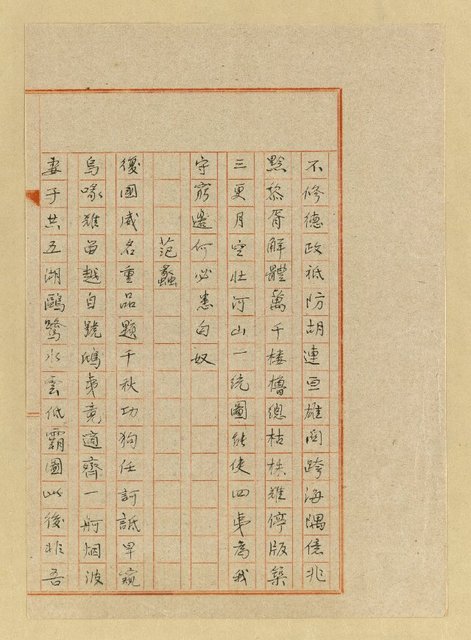 不修德政祗防胡連亘雄関跨海隅億兆
黔黎胥解體萬千樓櫓總枯株難停版築
三更月空壯河山一統圖能使四夷為我
守窮邊何必患匈奴
范蠡
復國威名重品題千秋功狗任訶詆早窺
烏喙難留越自號鴟夷竟適齊一舸烟波
妻子共五湖鷗鷺水雲低霸圖此後非吾